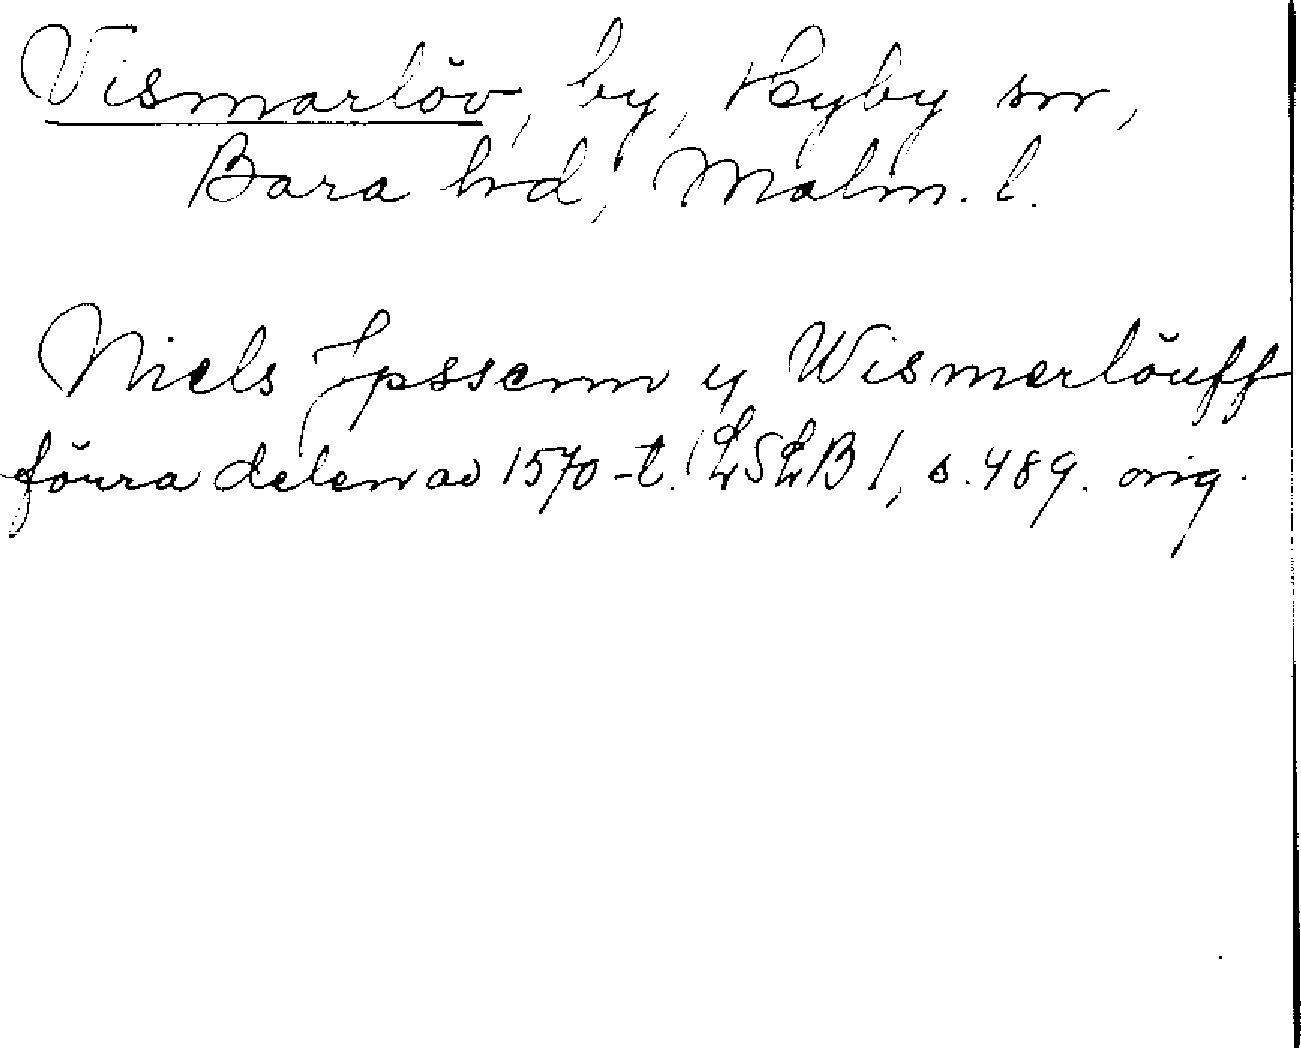 Vismarlöv, by, Hyby sn,
Bara hd, Malm. l.
Niels Jpssenn y Wismerlöuff
förra delen av 1570-t. LSLB 1, s. 489. orig.